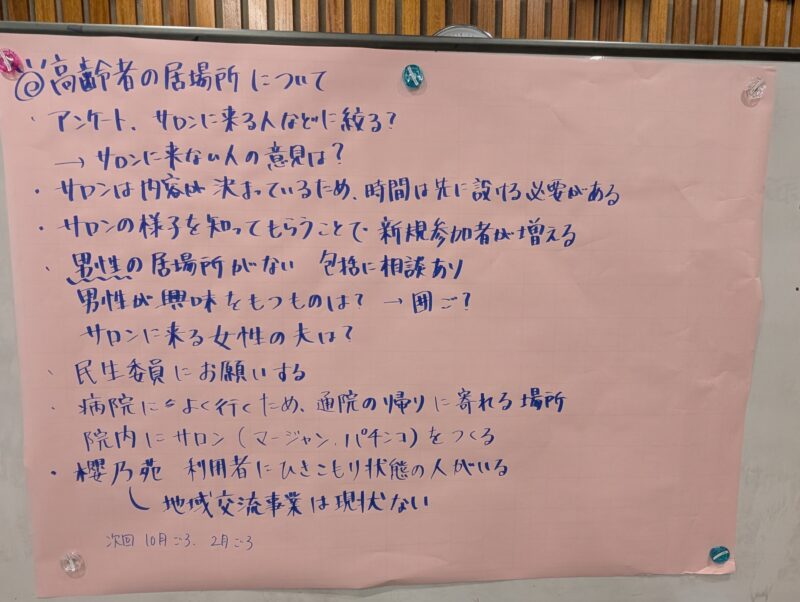 ◎高齢者の居場所について
・アンケート、サロンに来る人などに絞る?
→サロンに来ない人の意見は?
・サロンは内容が決まっているため、時間は先に設ける必要がある
・サロンの様子を知ってもらうことで新規参加者が増える
・男性の居場所がない 包括に相談あり
男性が興味をもつものは? →囲ご?
サロンに来る女性の夫は?
・民生委員にお願いする
・病院によく行くため、通院の帰りに寄れる場所
院内にサロン(マージャン、パチンコ)をつくる
・櫻乃苑 利用者にひきこもり状態の人がいる
地域交流事業は現状ない
次回 10月ごろ、2月ごろ